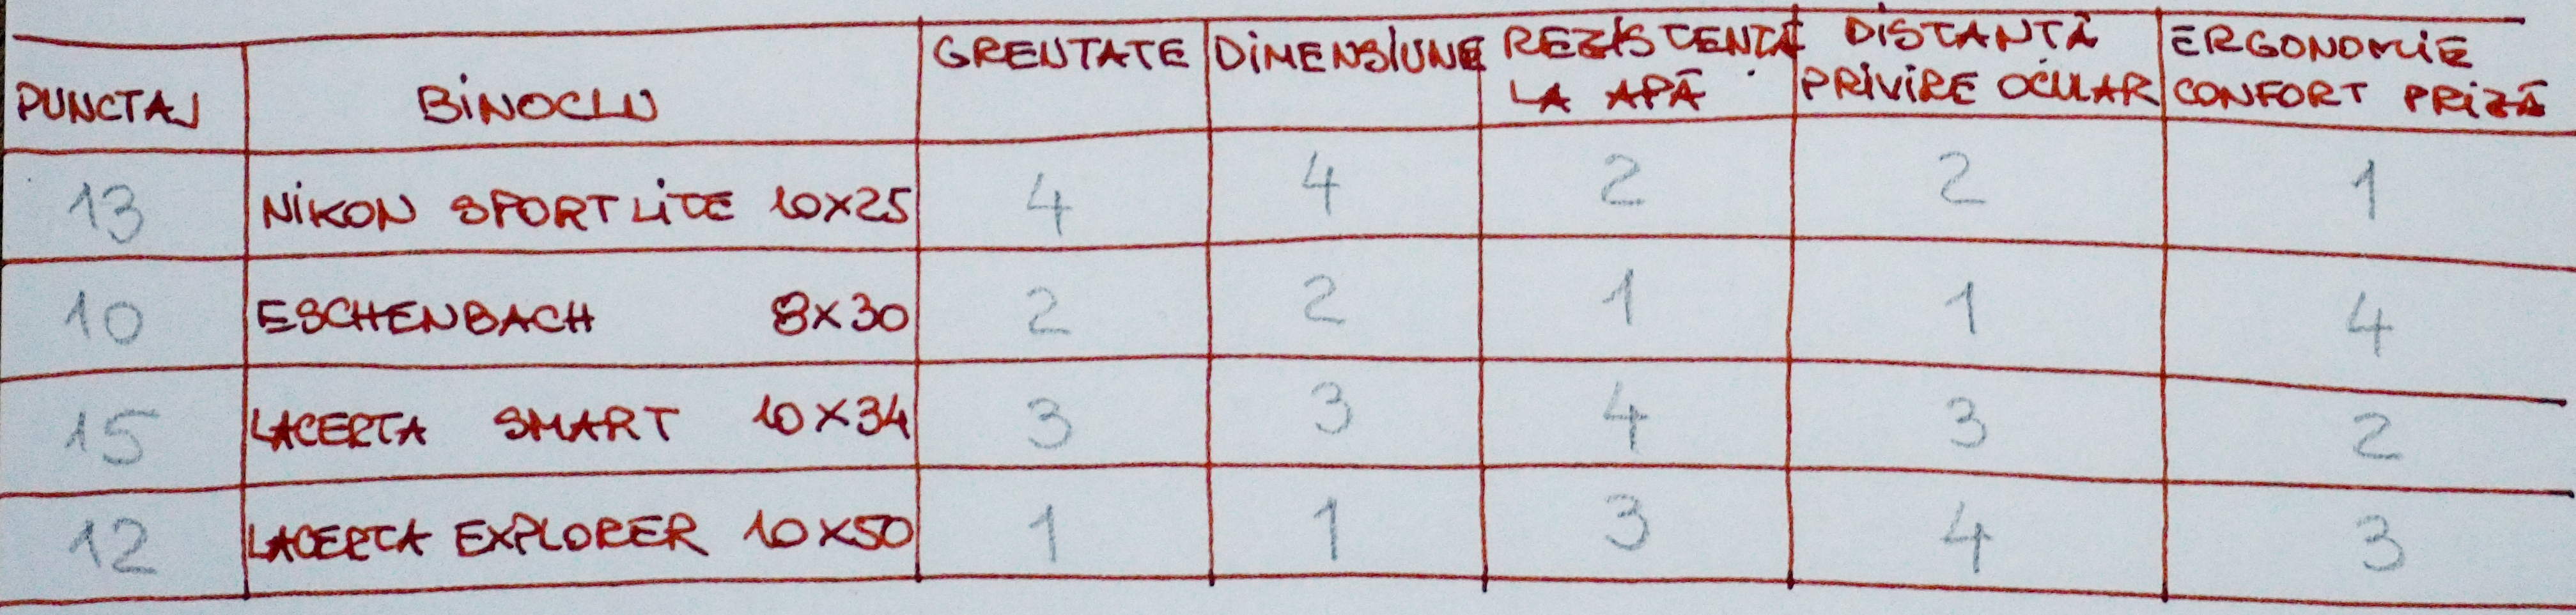 PUNCTAJ BINOCLU GREUTATE DIMENSIUNE REZISTENȚĂ LA APĂ DISTANȚĂ PRIVIRE OCULAR ERGONOMIE CONFORT PRIZĂ
13 NIKON SPORT LITE 10X25 4 4 2 2 1
10 ESCHENBACH 8X30 2 2 1 1 4
15 LACERTA SMART 10X34 3 3 4 3 2
12 LACERTA EXPLORER 10X50 1 1 3 4 3